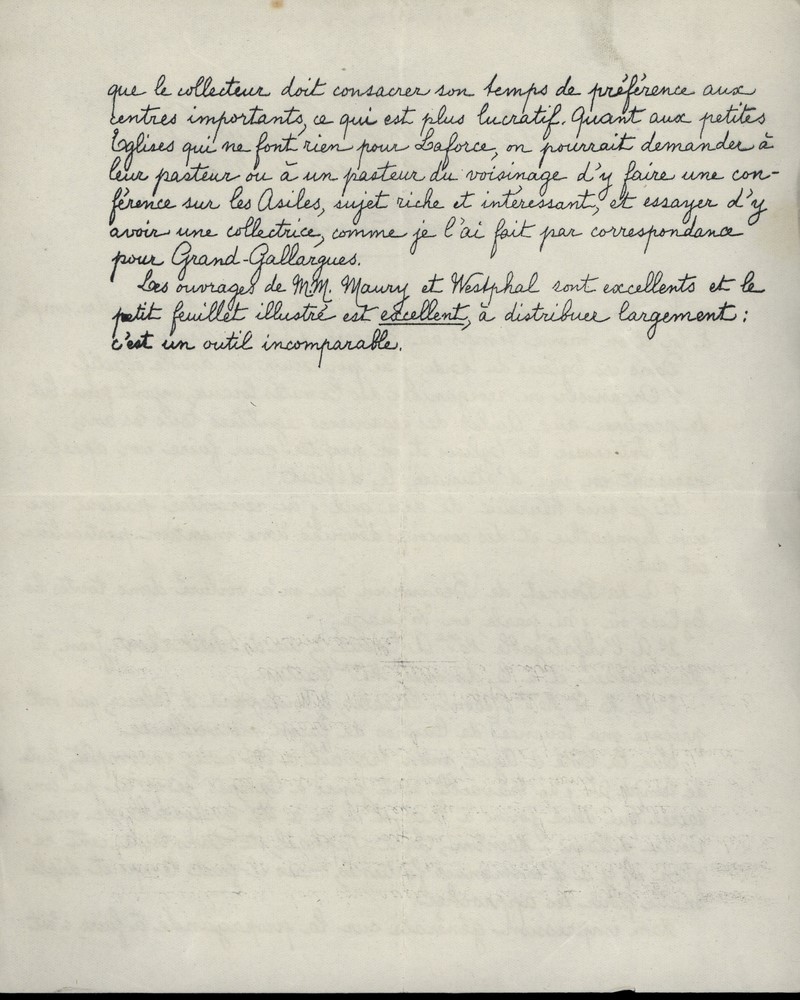 que le collecteur doit consacrer son temps de préférence aux
centres importants, ce qui est plus lucratif. Quant aux petites
Eglises qui ne font rien pour Laforce, on pourrait demander à
leur pasteur ou à un pasteur du voisinage d'y faire une con-
férence sur les Asiles, sujet riche et intéressant, et essayer d'y
avoir une collectrice, comme je l'ai fait par correspondance
pour Grand-Gallargues.
Les ouvrages de MM. Maury et Westphal sont excellents et le
petit feuillet illustré est excellent, à distribuer largement :
c'est un outil incomparable.